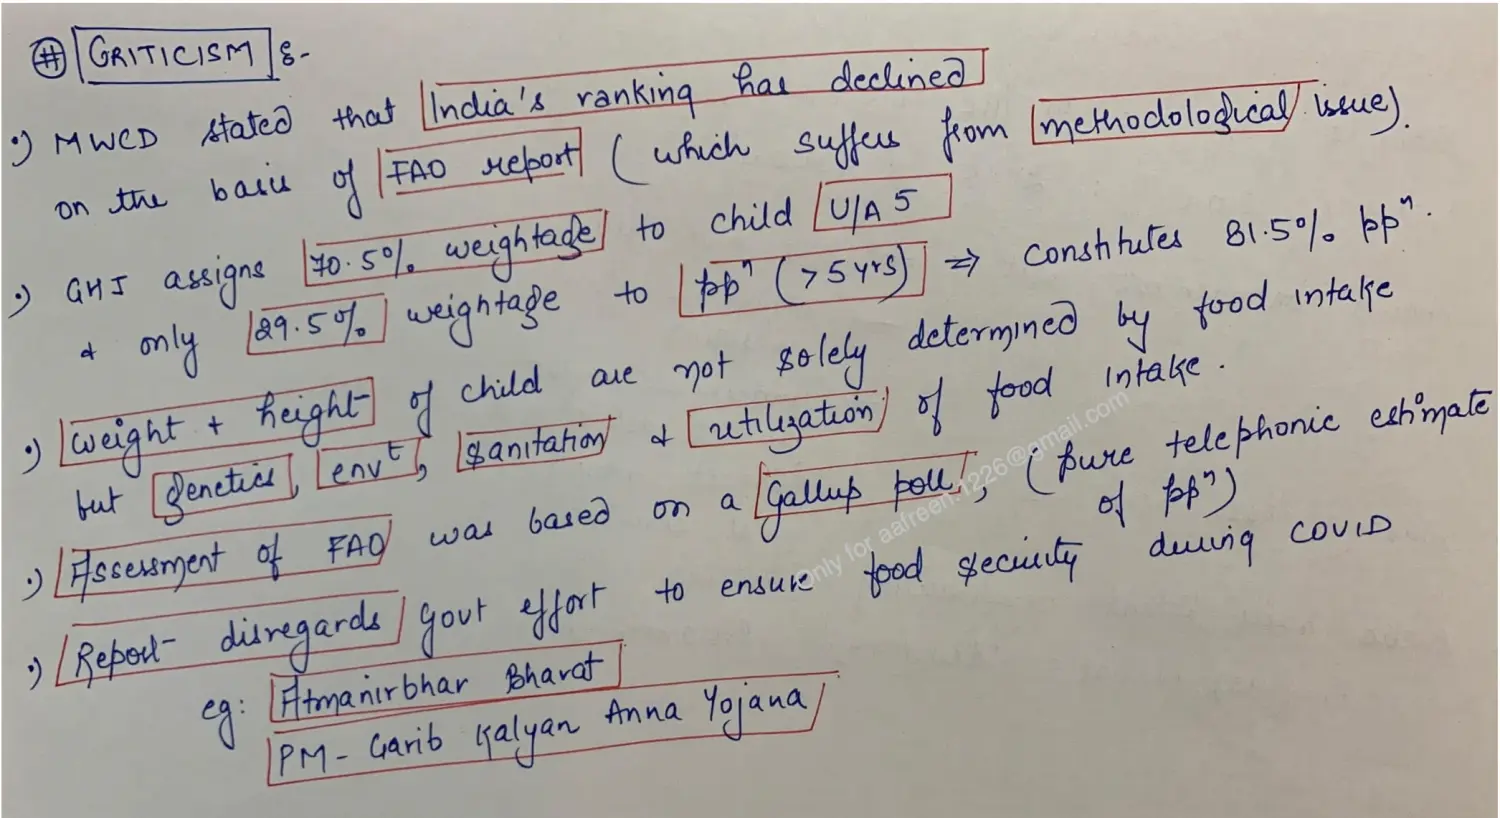 # CRITICISM :-
•) MWCD stated that India's ranking has declined
on the basis of FAO report (which suffers from methodological issue).
•) GHI assigns 70.5% weightage to child U/A 5
& only 29.5% weightage to ppⁿ (>5yrs) ⇒ constitutes 81.5% ppⁿ.
•) Weight + height of child are not solely determined by food intake
but genetics, envᵗ, sanitation & utilization of food intake.
•) Assessment of FAO was based on a Gallup poll, (pure telephonic estimate
of ppⁿ)
•) Report disregards govt effort to ensure food security during COVID
eg: Atmanirbhar Bharat
PM-Garib Kalyan Anna Yojana
Only for aafreen.1226@gmail.com